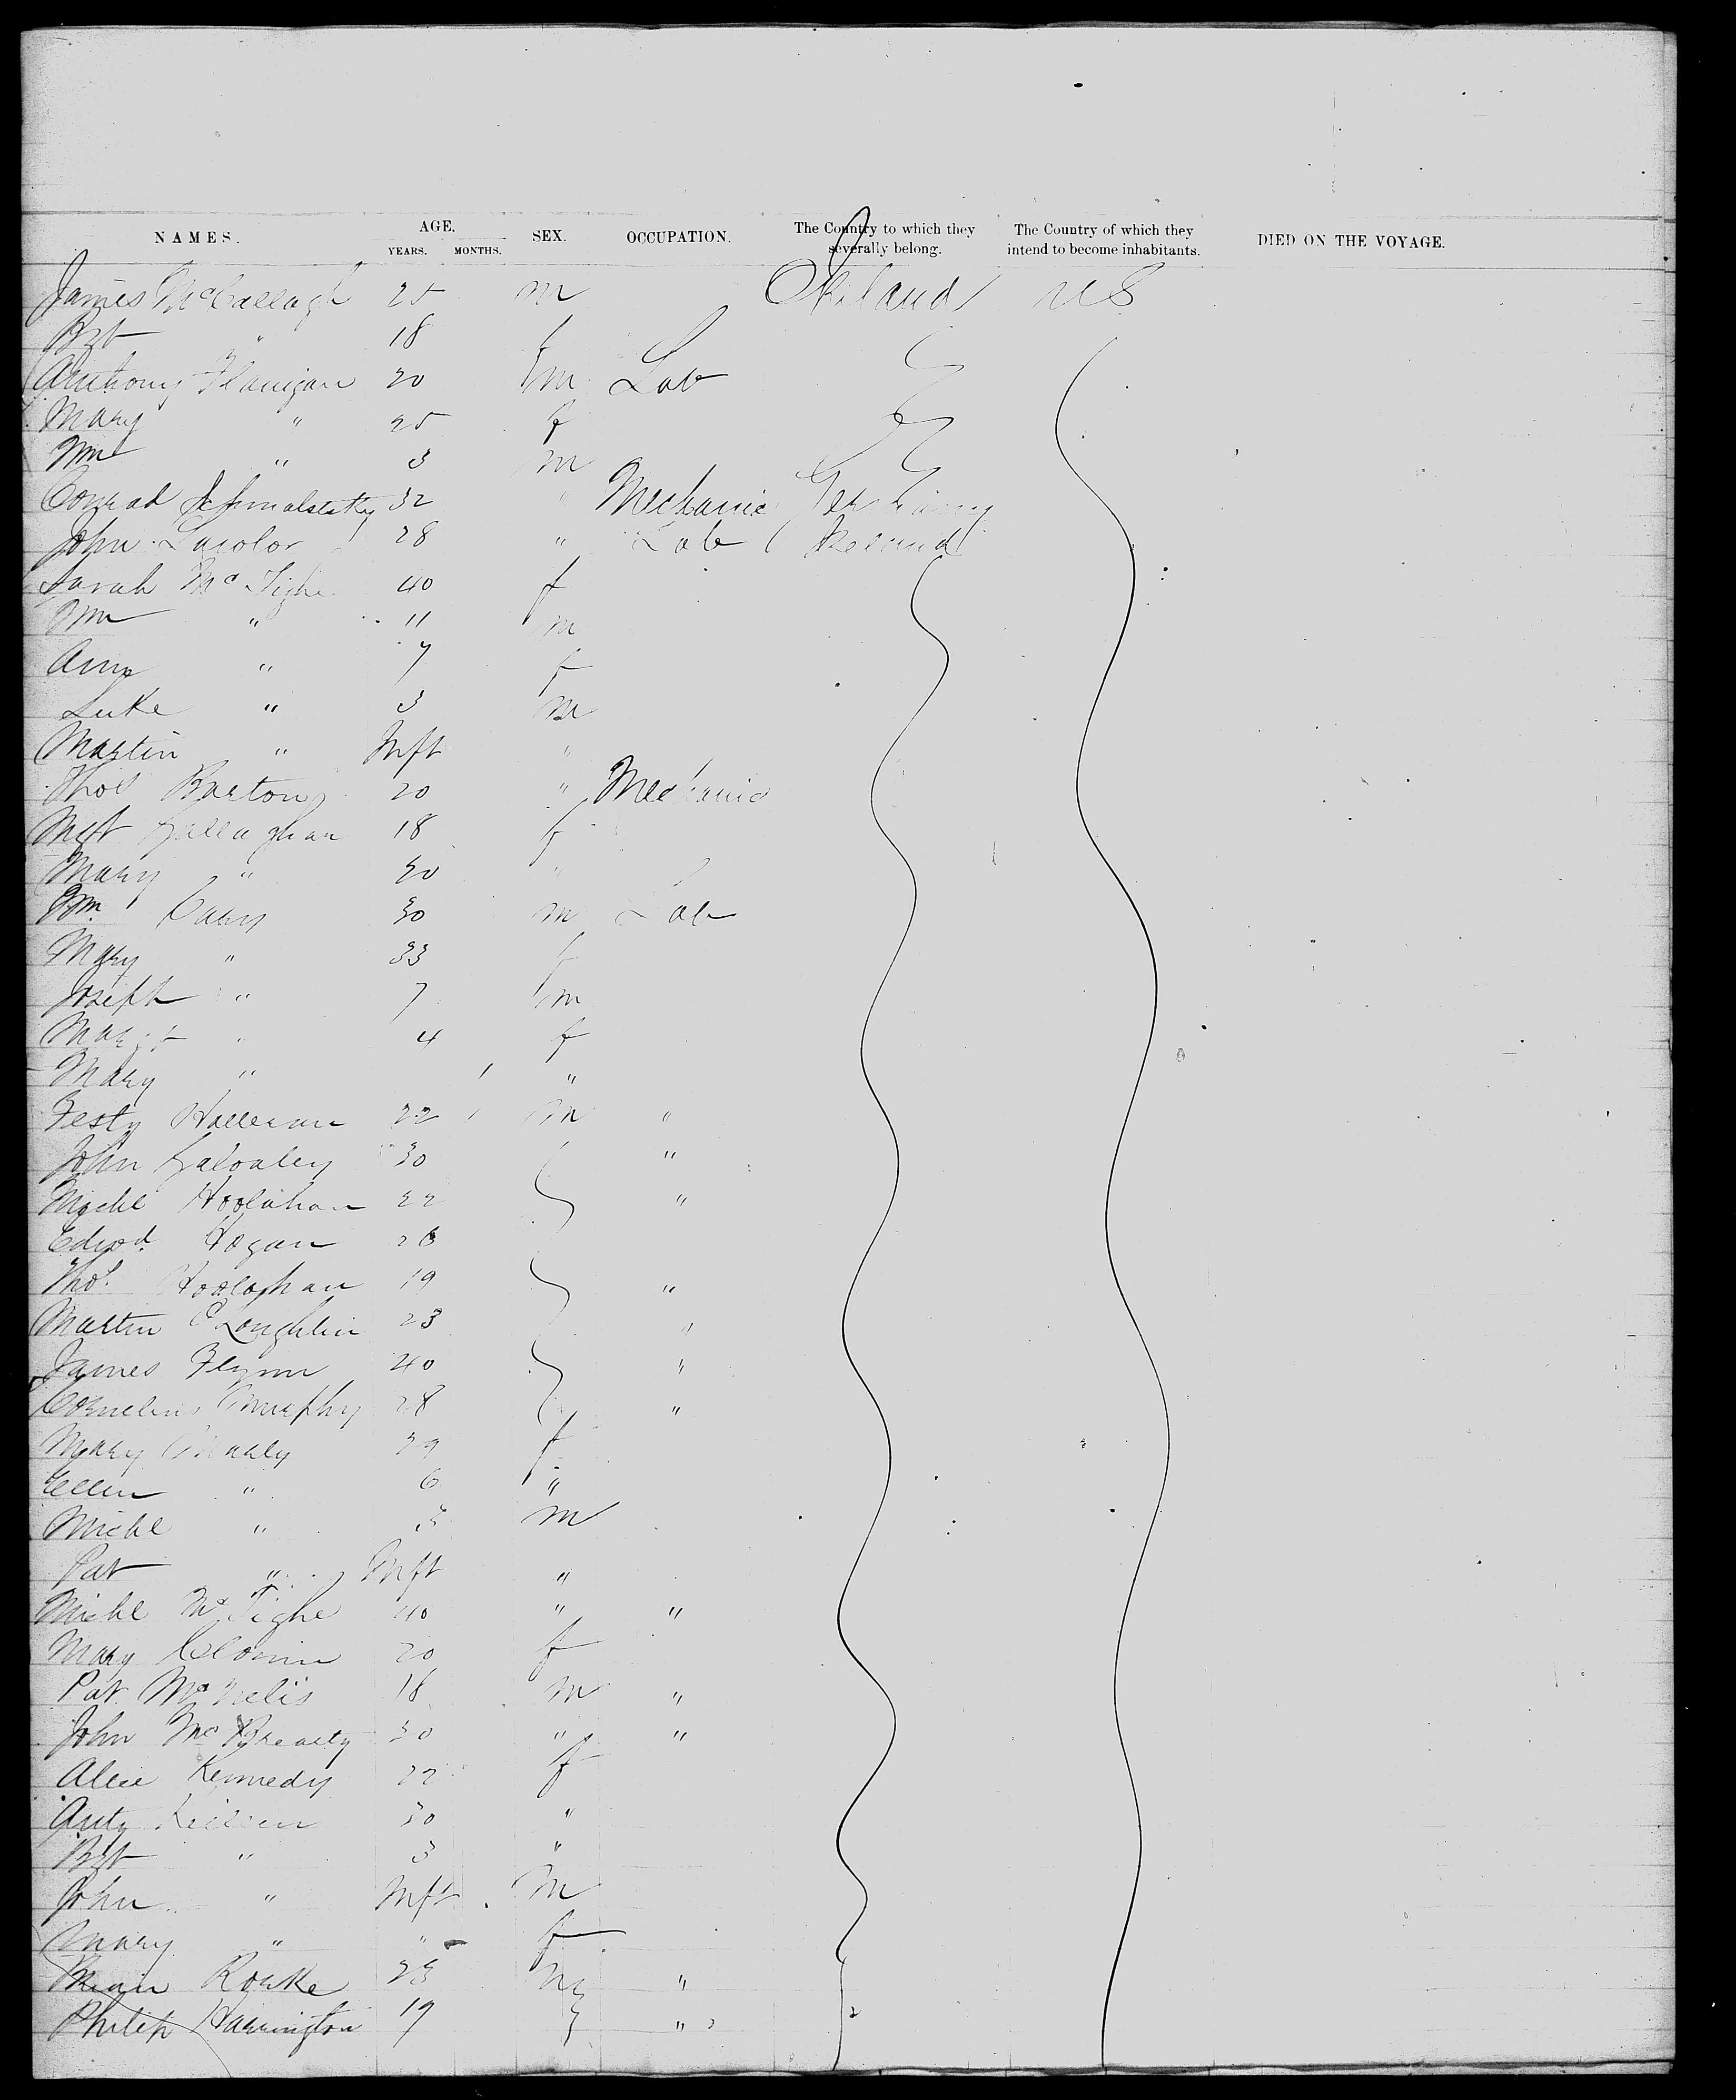 NAMES. AGE. SEX. OCCUPATION. The Country to which they severally belong. The Country of which they intend to become inhabitants. DIED ON THE VOYAGE.
YEARS. MONTHS.
James McCallagh 25 m Ireland U S
Bgt " 18 f
Anthony Flanigan 30 m Lab
Mary " 25 f
Wm " 3 m
Conrad 32 " Mechanic Germany
John Lawlor 28 " Lab Ireland
Sarah McTighe 40 f
Wm " 11 m
Ann " 7 f
Luke " 3 m
Martin " Inft "
Thos Barton 20 " Mechanic
Mgt Gallaghan 18 f
Mary " 30 "
Wm Casey 30 m Lab
Mary " 33 f
Joseph " 7 m
Margt " 4 f
Mary " 1 "
Festy Halleran 22 m "
John 30 "
Michl Hoolahan 22 "
Edwd Hogan 26
Thos Hoolaghan 19 "
Martin O'Loughlin 23 "
James Flynn 40 "
Cornelius Murphy 28 "
Mary 29 f
Ellen " 6 "
Michl " 3 m
Pat " Inft "
Michl McTighe 40 " "
Mary 20 f
Pat McNelis 18 m "
John McBrearty 30 " "
Alice Kennedy 22 f
30 "
Bgt " 3 "
John " Inft m
Mary " " f
Rourke 23 m "
Philip Harrington 19 "